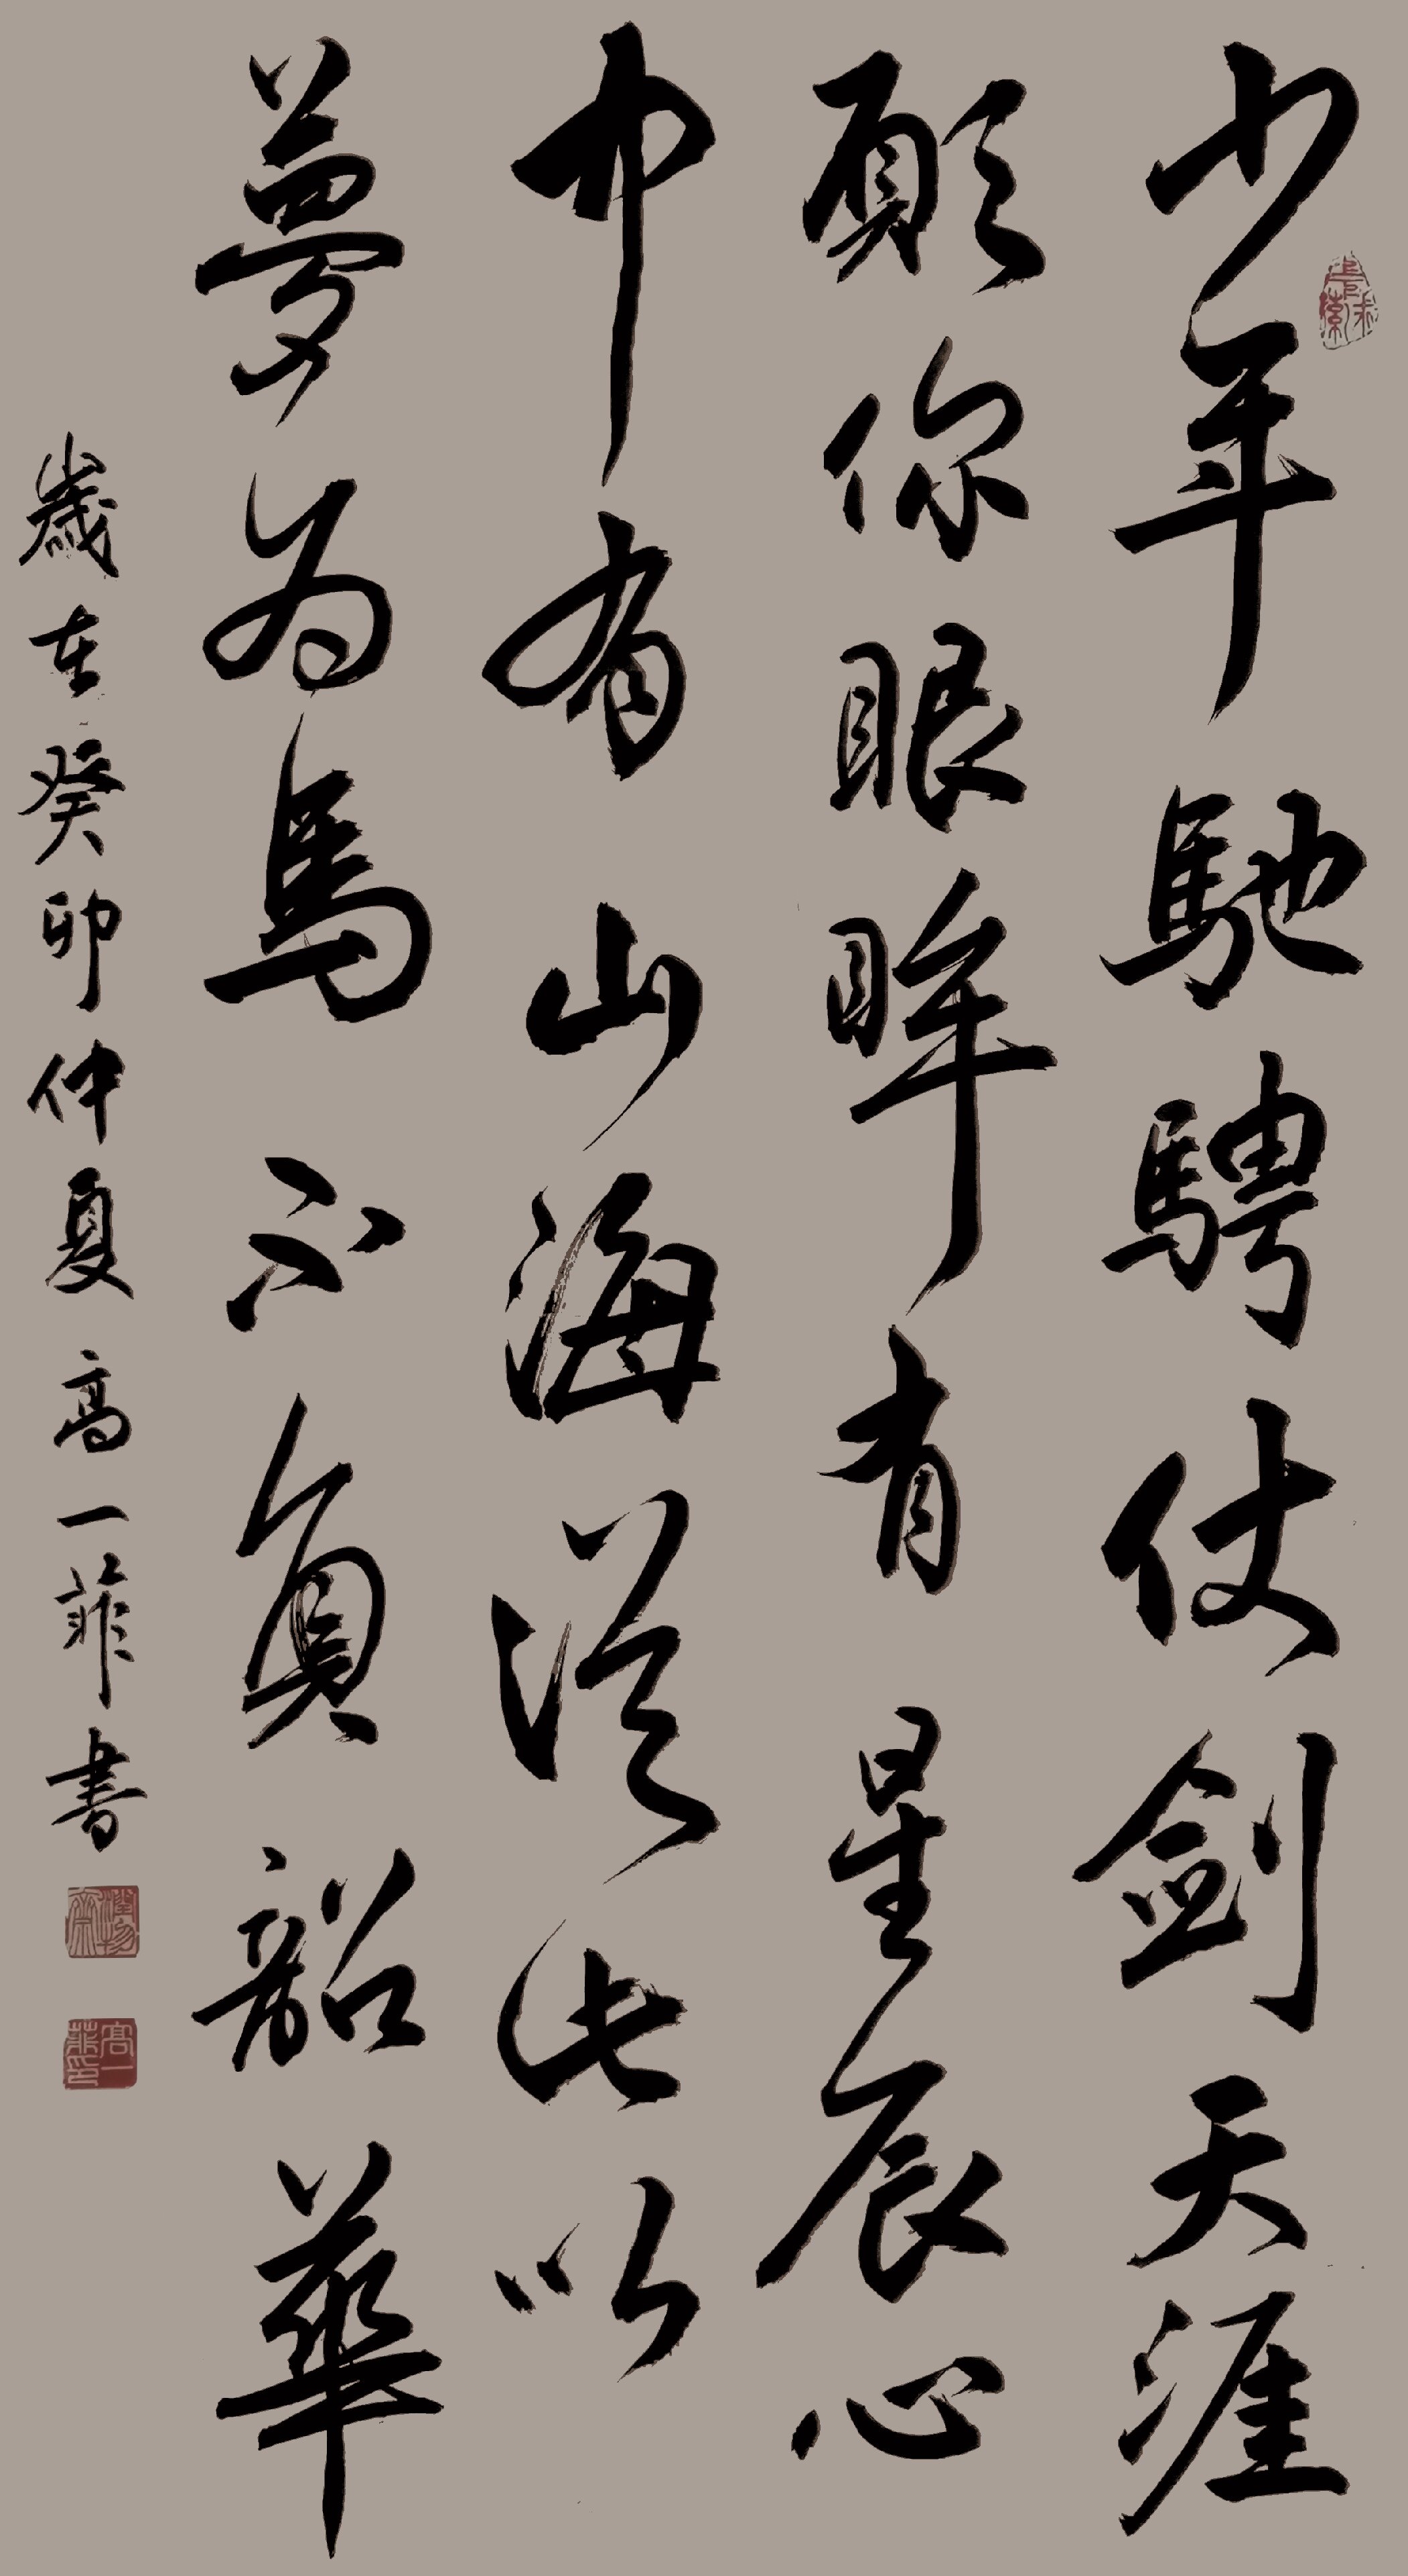 少年馳騁仗劍天涯
願你眼眸有星辰心
中有山海從此以
夢為馬不負韶華
歲在癸卯仲夏高一菲書
潤物齋
高一菲印